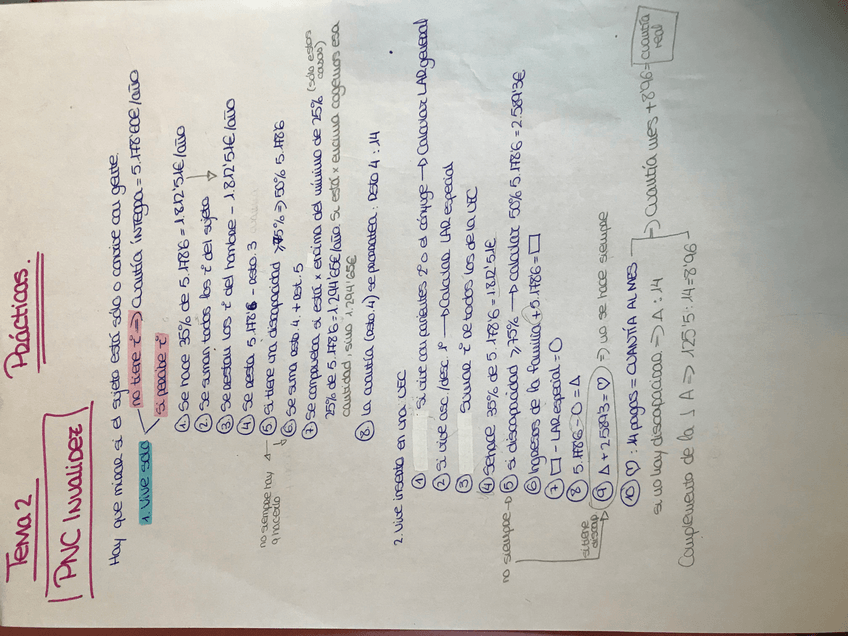 Tema 2 Prácticas.
PNC Invalidez
Hay que mirar si el sujeto está sólo o convive con gente.
1. Vive solo
no tiene r̄ => Cuantía íntegra = 5.178'60€/año
si percibe r̄
① Se hace 35% de 5.178'6 = 1.812'51€/año
② Se suman todos los r̄ del sujeto
③ Se restan los r̄ del hombre - 1.812'51€/año
④ Se resta 5.178'6 - rdto. 3
no siempre hay q hacerlo
⑤ Si tiene una discapacidad ≥75% => 50% 5.178'6
⑥ Se suma rdto. 4. + rdt. 5
⑦ Se comprueba si está x encima del mínimo de 25% (sólo estos casos)
25% de 5.178'6 = 1.294'65€/año si está x encima cogemos esa
cantidad, sino 1.294'65€
⑧ La cuantía (rdto. 4) se prorratea: rdto 4 : 14
2. Vive inserto en una UEC
① Si vive con parientes 2º o el cónyuge → Calcular LAR general
② Si vive asc./desc. 1º → Calcular LAR especial
③ Sumar r̄ de todos los de la UEC
④ Se hace 35% de 5.178'6 = 1.812'51€
no siempre →
⑤ si discapacidad ≥75% → calcular 50% 5.178'6 = 2.589'3€
⑥ Ingresos de la familia + 5.178'6 = □
⑦ □ - LAR especial = O
⑧ 5.178'6 - O = Δ
si tiene discap
⑨ Δ + 2.589'3 = ♡ => no se hace siempre
⑩ ♡ : 14 pagas = CUANTÍA AL MES
si no hay discapacidad => Δ : 14
=> Cuantía mes + 8'96 = cuantía real
Complemento de la J A => 125'5 : 14 = 8'96